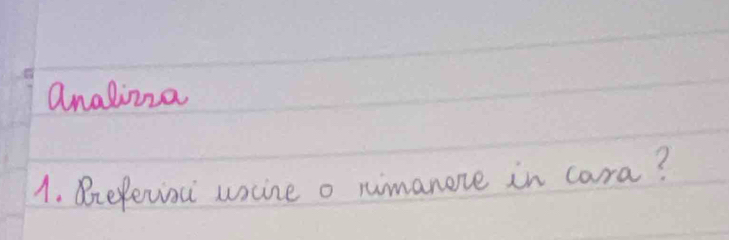 analizza
1. Preferisci uscire o rimanere in casa?